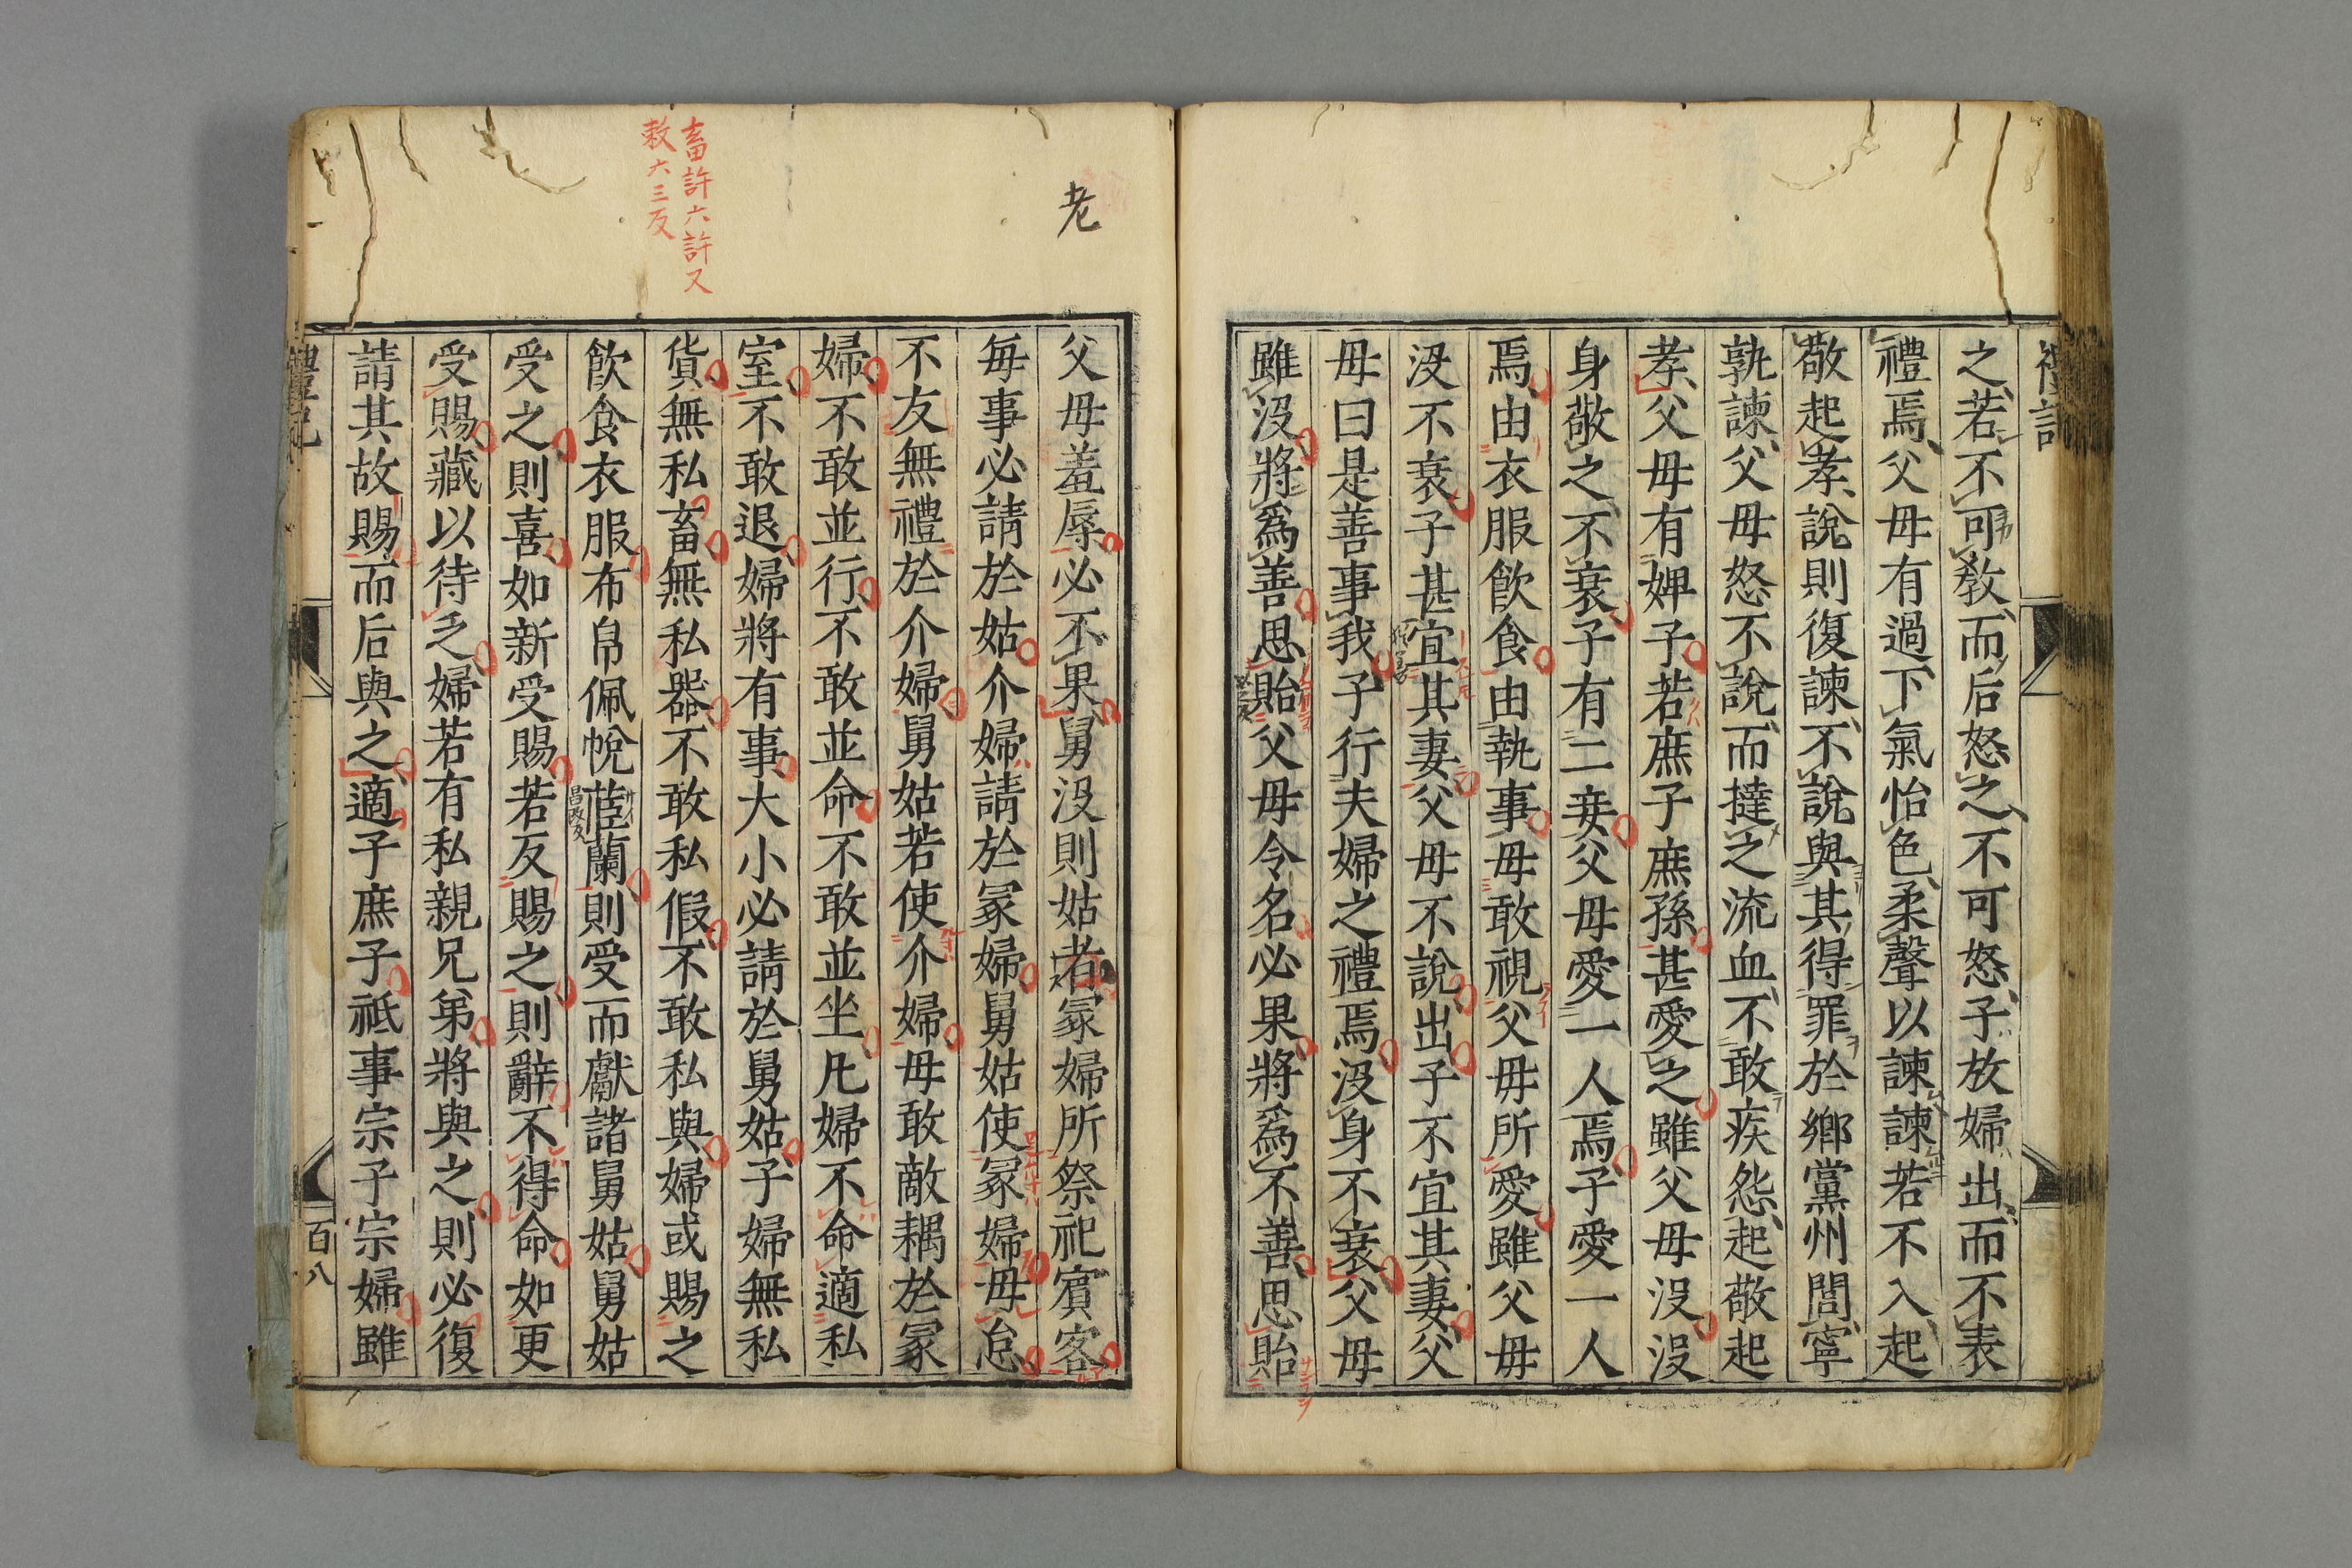 禮記
之若不可教而后怒之不可怒子放婦出而不表
禮焉父母有過下氣怡色柔聲以諫諫若不入起
敬起孝說則復諫不說與其得罪於鄉黨州閭寧
孰諫父母怒不說而撻之流血不敢疾怨起敬起
孝父母有婢子若庶子庶孫甚愛之雖父母沒沒
身敬之不衰子有二妾父母愛一人焉子愛一人
焉由衣服飲食由執事毋敢視父母所愛雖父母
沒不衰子甚宜其妻父母不說出子不宜其妻父
母曰是善事我子行夫婦之禮焉沒身不衰父母
雖沒將為善思貽父母令名必果將為不善思貽
老
父母羞辱必不果舅沒則姑者冢婦所祭祀賓客
每事必請於姑介婦請於冢婦舅姑使冢婦毋怠
不友無禮於介婦舅姑若使介婦毋敢敵耦於冢
婦不敢並行不敢並命不敢並坐凡婦不命適私
室不敢退婦將有事大小必請於舅姑子婦無私
畜許六許又
敕六三反
貨無私畜無私器不敢私假不敢私與婦或賜之
飲食衣服布帛佩帨茝蘭則受而獻諸舅姑舅姑
昌改反
受之則喜如新受賜若反賜之則辭不得命如更
受賜藏以待乏婦若有私親兄弟將與之則必復
請其故賜而后與之適子庶子祗事宗子宗婦雖
禮記
百八